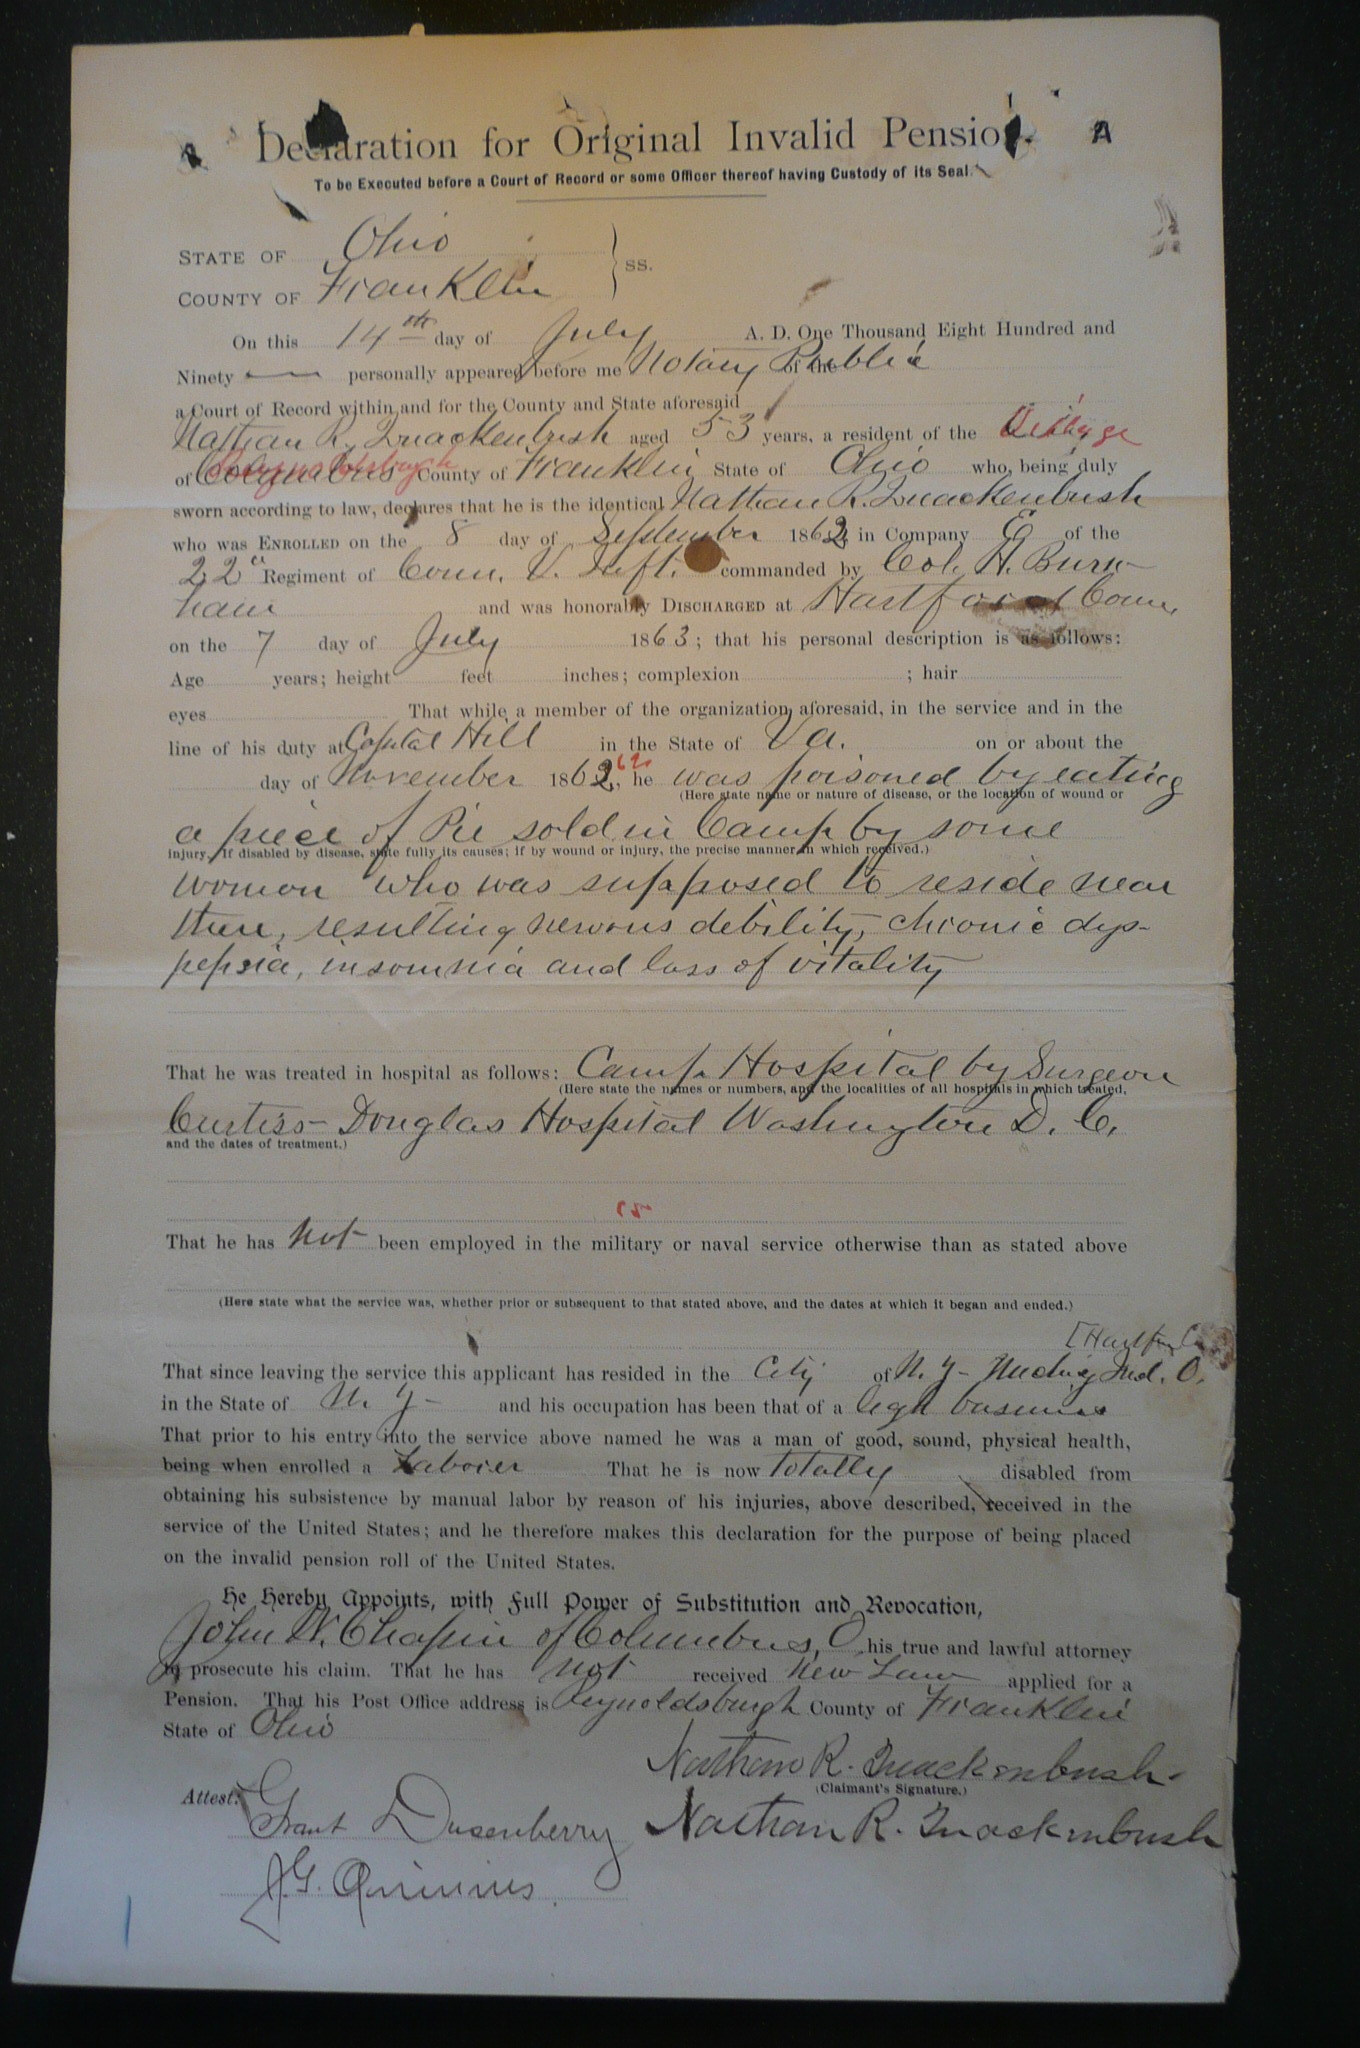 Declaration for Original Invalid Pension.
A
To be Executed before a Court of Record or some Officer thereof having Custody of its Seal.
STATE OF Ohio
COUNTY OF Franklin } SS.
On this 14th day of July A. D. One Thousand Eight Hundred and
Ninety — personally appeared before me Notary Public of the
a Court of Record within and for the County and State aforesaid
Nathan R. Quackenbush aged 53 years, a resident of the Village
of Columbus Reynoldsburgh County of Franklin State of Ohio who, being duly
sworn according to law, declares that he is the identical Nathan R. Quackenbush
who was ENROLLED on the 8 day of September 1862, in Company E of the
22 Regiment of Conn. V. Inft. commanded by Col. H. Burn-
ham and was honorably DISCHARGED at Hartford Conn,
on the 7 day of July 1863; that his personal description is as follows:
Age years; height feet inches; complexion ; hair
eyes That while a member of the organization aforesaid, in the service and in the
line of his duty at Capital Hill in the State of Va. on or about the
day of November 1862, 62 he was poisoned by eating
(Here state name or nature of disease, or the location of wound or
a piece of Pie sold in Camp by some
injury. If disabled by disease, state fully its causes; if by wound or injury, the precise manner in which received.)
woman who was supposed to reside near
there, resulting nervous debility, chronic dys-
pepsia, insomnia and loss of vitality
That he was treated in hospital as follows: Camp Hospital by Surgeon
(Here state the names or numbers, and the localities of all hospitals in which treated,
Curtiss - Douglas Hospital Washington D. C.
and the dates of treatment.)
That he has not been employed in the military or naval service otherwise than as stated above
(Here state what the service was, whether prior or subsequent to that stated above, and the dates at which it began and ended.)
[Hartfor C
That since leaving the service this applicant has resided in the City of N. Y - Ind. O.
in the State of N. Y - and his occupation has been that of a light business
That prior to his entry into the service above named he was a man of good, sound, physical health,
being when enrolled a Laborer That he is now totally disabled from
obtaining his subsistence by manual labor by reason of his injuries, above described, received in the
service of the United States; and he therefore makes this declaration for the purpose of being placed
on the invalid pension roll of the United States.
He Hereby Appoints, with Full Power of Substitution and Revocation,
John W. Chapin of Columbus, O. his true and lawful attorney
to prosecute his claim. That he has not received New Law applied for a
Pension. That his Post Office address is Reynoldsburgh County of Franklin
State of Ohio
Nathan R. Quackenbush
(Claimant's Signature.)
Attest: Grant Dusenberry Nathan R. Quackenbush
J. G.